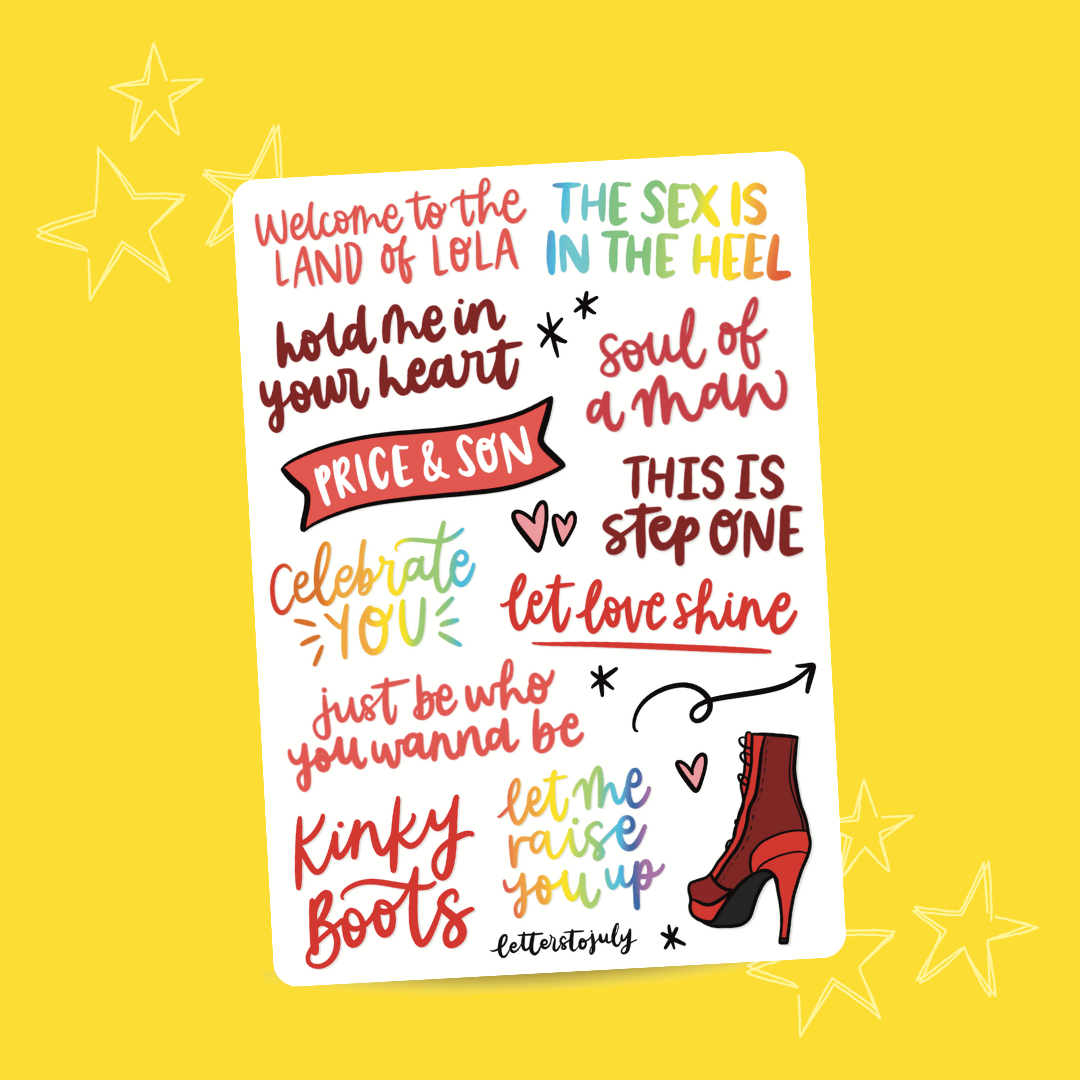 Welcome to the
LAND of LOLA
THE SEX IS
IN THE HEEL
hold me in
your heart
soul of
a man
PRICE & SON
THIS IS
step ONE
Celebrate
YOU
let love shine
just be who
you wanna be
let me
raise
you up
Kinky
Boots
letterstojuly